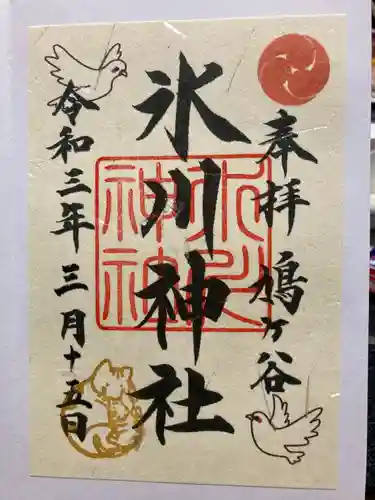 奉拝 鳩ヶ谷
氷川神社
令和三年三月十五日
氷川
神社